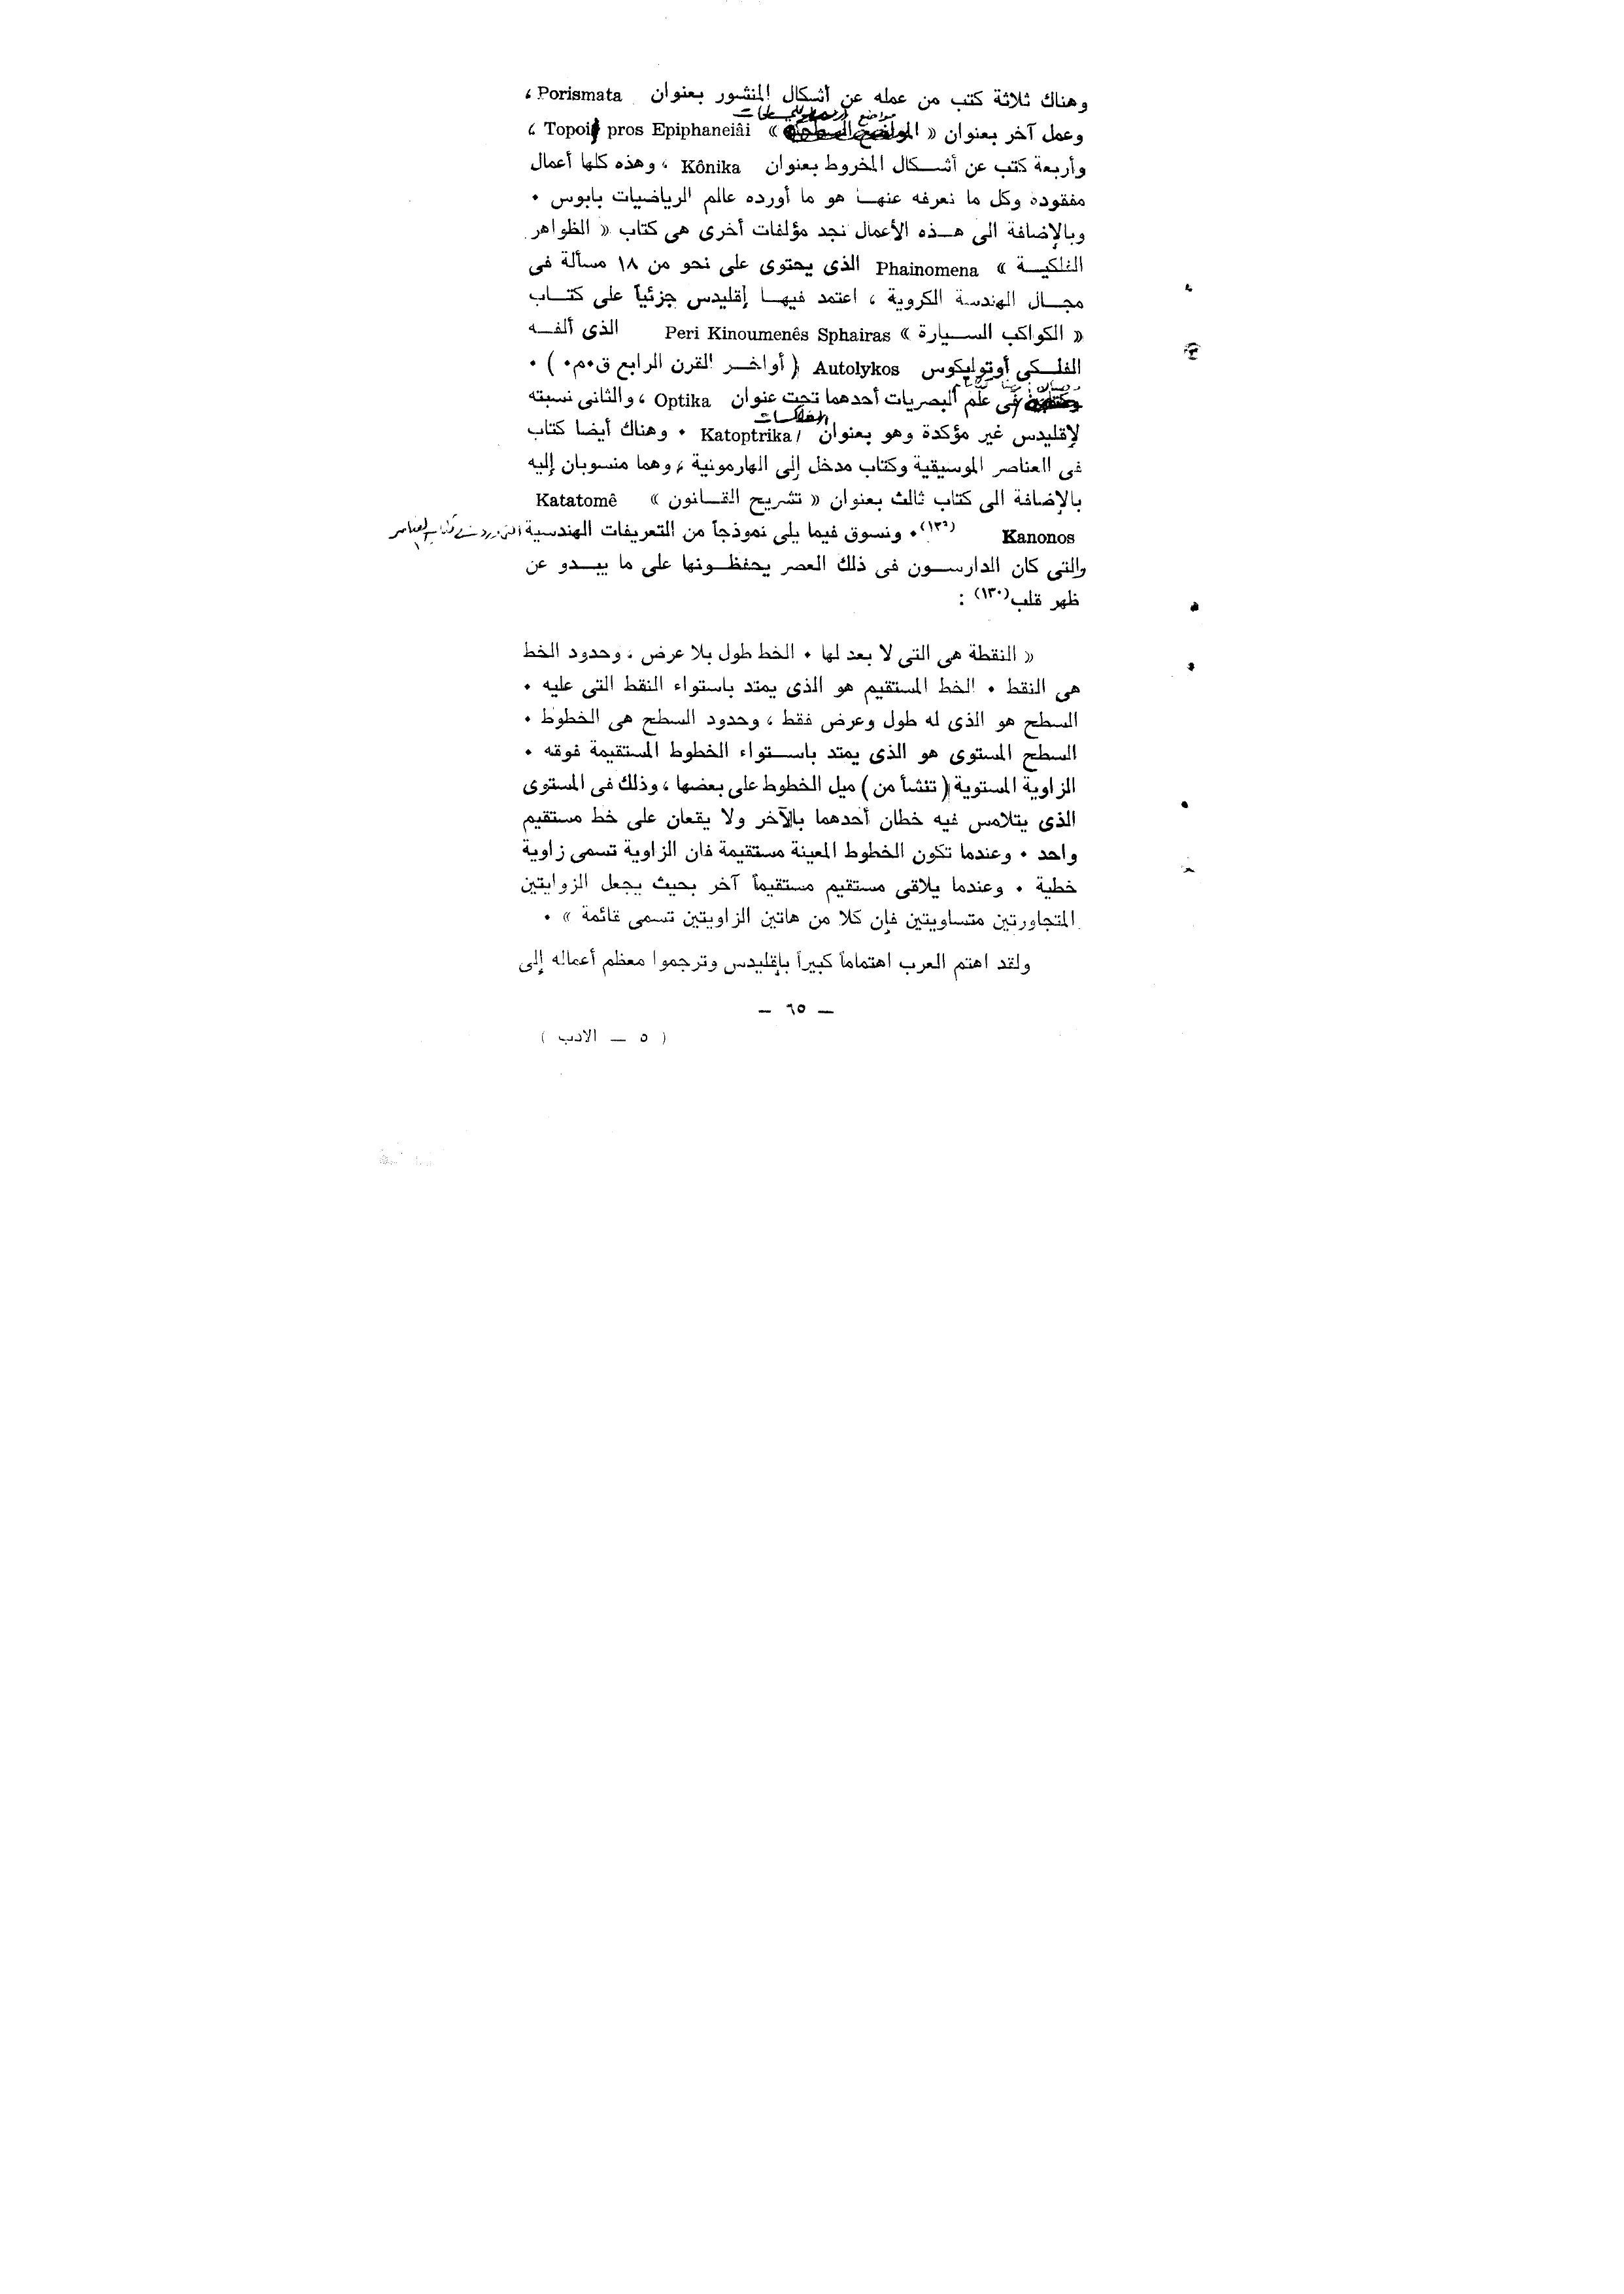 وهناك ثلاثة كتب من عمله عن أشكال المنشور بعنوان Porismata ،
مواضع
وعمل آخر بعنوان « » Topoi pros Epiphaneiâi ،
وأربعة كتب عن أشـكال المخروط بعنوان Kônika ، وهذه كلها أعمال
مفقودة وكل ما نعرفه عنهـا هو ما أورده عالم الرياضيات بابوس ٠
وبالإضافة الى هـذه الأعمال نجد مؤلفات أخرى هى كتاب « الظواهر
الفلكيـة » Phainomena الذى يحتوى على نحو من ١٨ مسألة فى
مجـال الهندسة الكروية ، اعتمد فيهـا إقليدس جزئياً على كتـاب
« الكواكب السـيارة » Peri Kinoumenês Sphairas الذى ألفـه
الفلـكى أوتوليكوس Autolykos ( أواخـر القرن الرابع ق٠م٠ ) ٠
فى علم البصريات أحدهما تحت عنوان Optika ، والثانى نسبته
لإقليدس غير مؤكدة وهو بعنوان / Katoptrika ٠ وهناك أيضا كتاب
فى العناصر الموسيقية وكتاب مدخل إلى الهارمونية ، وهما منسوبان إليه
بالإضافة الى كتاب ثالث بعنوان « تشريح القـانون » Katatomê
Kanonos (١٢٩)٠ ونسوق فيما يلى نموذجاً من التعريفات الهندسية
والتى كان الدارسـون فى ذلك العصر يحفظـونها على ما يبـدو عن
ظهر قلب(١٣٠) :
« النقطة هى التى لا بعد لها ٠ الخط طول بلا عرض ، وحدود الخط
هى النقط ٠ الخط المستقيم هو الذى يمتد باستواء النقط التى عليه ٠
السطح هو الذى له طول وعرض فقط ، وحدود السطح هى الخطوط ٠
السطح المستوى هو الذى يمتد باسـتواء الخطوط المستقيمة فوقه ٠
الزاوية المستوية ( تنشأ من ) ميل الخطوط على بعضها ، وذلك فى المستوى
الذى يتلامس فيه خطان أحدهما بالآخر ولا يقعان على خط مستقيم
واحد ٠ وعندما تكون الخطوط المعينة مستقيمة فان الزاوية تسمى زاوية
خطية ٠ وعندما يلاقى مستقيم مستقيماً آخر بحيث يجعل الزوايتين
المتجاورتين متساويتين فإن كلا من هاتين الزاويتين تسمى قائمة » ٠
ولقد اهتم العرب اهتماماً كبيراً بإقليدس وترجموا معظم أعماله إلى
— ٦٥ —
( ٥ — الادب )